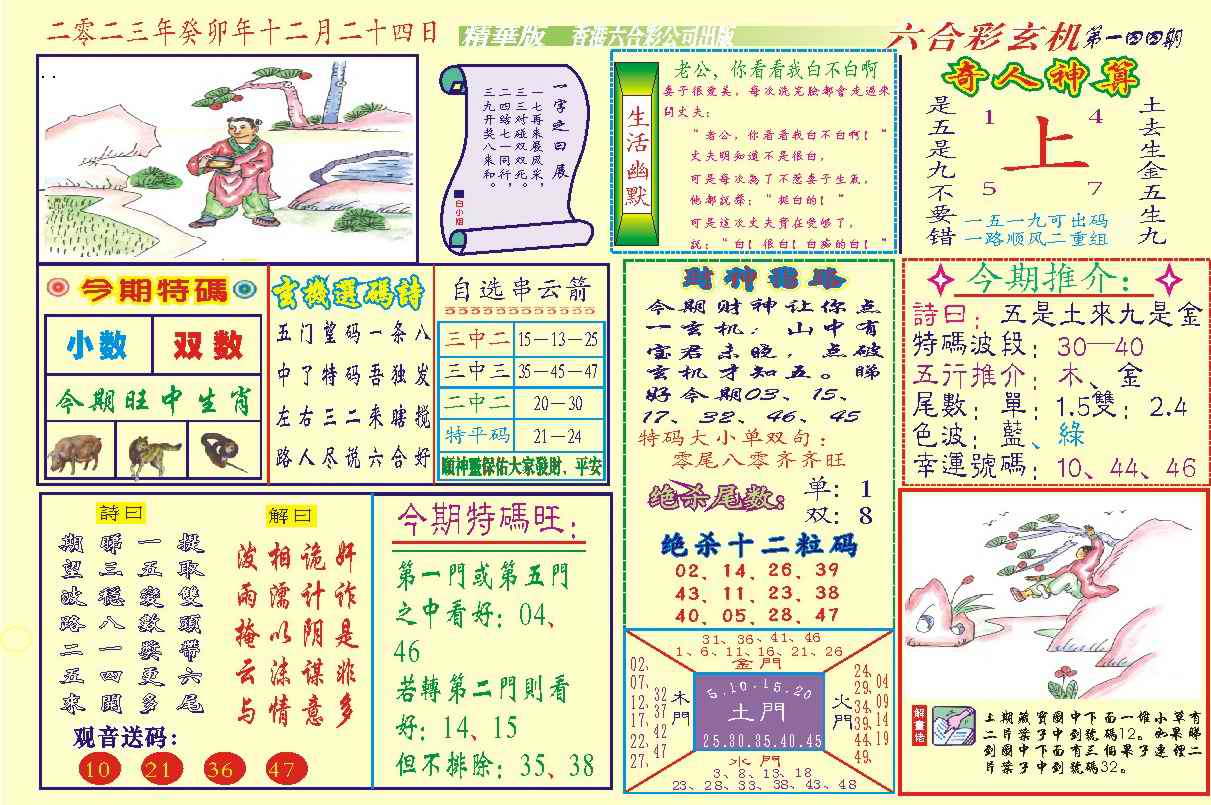 二零二三年癸卯年十二月二十四日
精華版 香港六合彩公司出版
六合彩玄机第一四四期
一字之曰展
一七再来展风采，
三三对碰双死。
二四瞎七一同行，
三九开奖八来和。
白小姐
生活幽默
老公，你看看我白不白啊
妻子很爱美，每次洗完脸都會走過來
问丈夫：
“老公，你看看我白不白啊！”
丈夫明知道不是很白，
可是每次為了不惹妻子生氣，
他都說聲：“挺白的！”
可是這次丈夫實在受够了，
説：“白！很白！白痴的白！”
奇人神算
是五是九不要错
1 4
上
5 7
土去生金五生九
一五一九可出码
一路顺风二重组
今期特碼
小数 双数
今期旺中生肖
玄機選碼詩
五门望码一条八
中了特码吾独发
左右三二来瞎搅
路人尽说六合好
自选串云箭
三中二 15—13—25
三中三 35—45—47
二中二 20—30
特平码 21—24
願神靈保佑大家發財、平安
財神賜路
今期财神让你点
一玄机：山中有
宝君未晓，点破
玄机才知五。睇
好今期03、15、
17、32、46、45
特码大小单双句：
零尾八零齐齐旺
绝杀尾数：
单：1
双：8
绝杀十二粒码
02、14、26、39
43、11、23、38
40、05、28、47
今期推介：
詩曰：五是土來九是金
特碼波段：30—40
五行推介：木、金
尾數：單：1.5雙：2.4
色波：藍、綠
幸運號碼：10、44、46
詩曰
提取雙頭帶六尾
一五變數獎更多
睇三穩八一四開
期望波路二五來
解曰
奸诈是非多
诡计阴谋意
相濡以沫情
波雨掩云与
观音送码：
10 21 36 47
今期特碼旺：
第一門或第五門
之中看好：04、
46
若轉第二門則看
好：14、15
但不排除：35、38
31、36、41、46
1、6、11、16、21、26
金門
02、07、12、17、22、27、
32、37、42、47
木門
5.10.15.20
土門
25.30.35.40.45
火門
24、29、34、39、44、49、
04、09、14、19
水門
3、8、13、18
23、28、33、38、43、48
解畫佬
上期藏寶圖中下面一堆小草有
二片葉子中到號碼12。如果睇
到圖中下面有三個果子連裡二
片葉子中到號碼32。